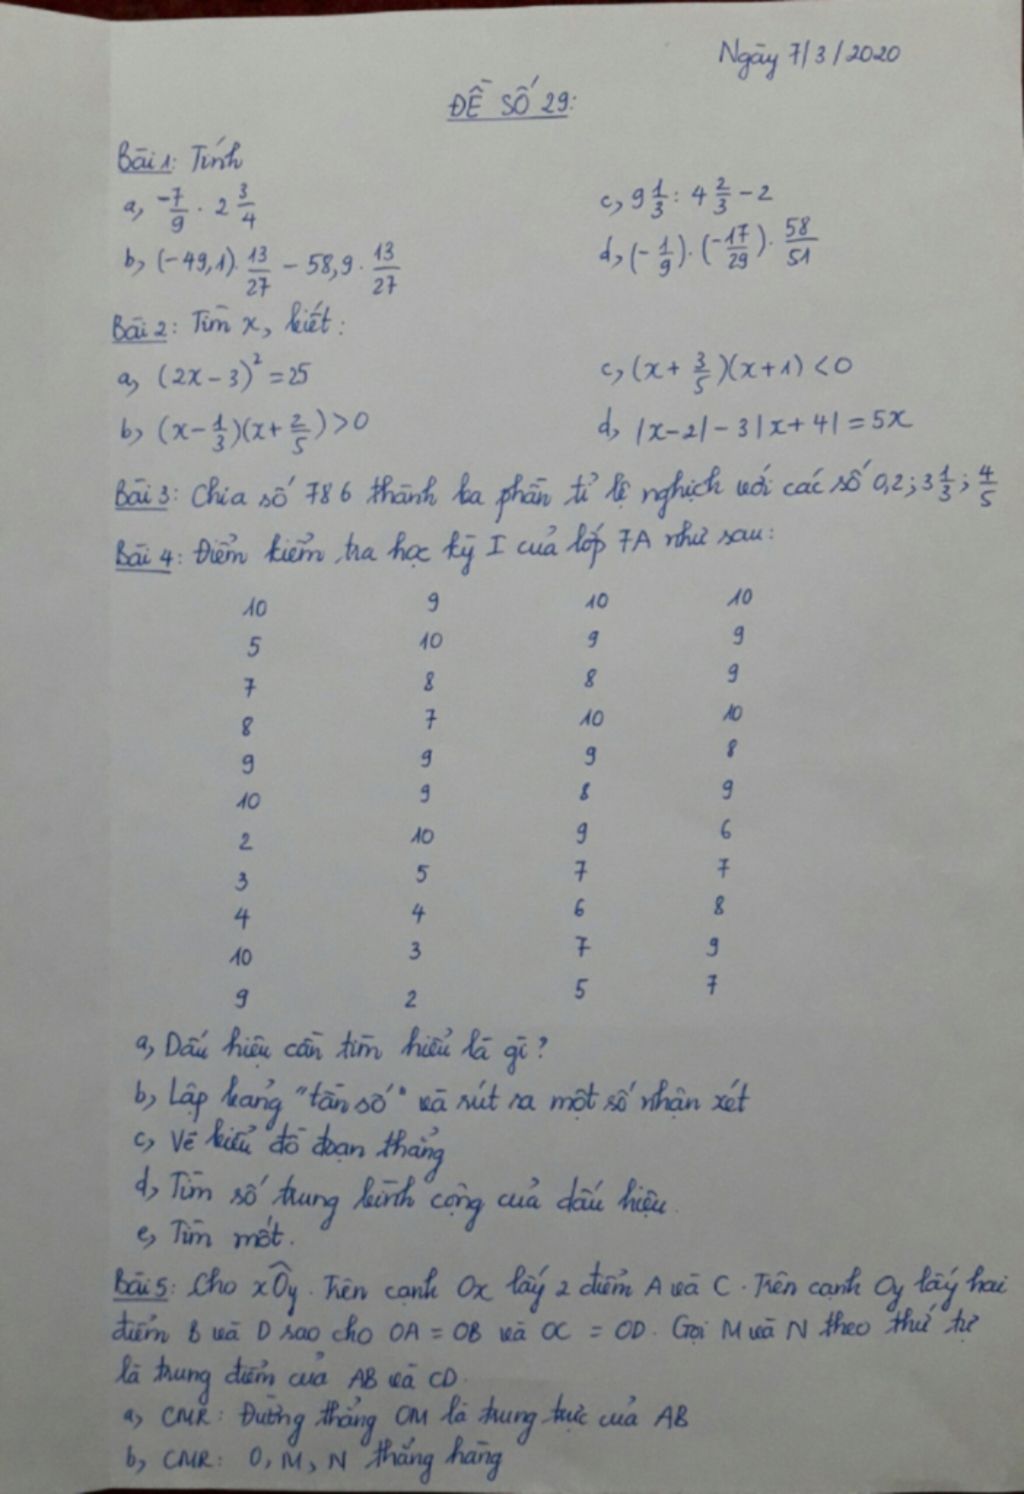 Ngày 7/3/2020
ĐỀ SỐ 29:
Bài 1: Tính
a, -7/9 . 2 3/4
c, 9 1/3 : 4 2/3 - 2
b, (-49,1). 13/27 - 58,9 . 13/27
d, (-1/9).(-17/29). 58/51
Bài 2: Tìm x, biết:
a, (2x-3)² = 25
c, (x + 3/5)(x+1) < 0
b, (x - 1/3)(x + 2/5) > 0
d, |x-2| - 3|x+4| = 5x
Bài 3: Chia số 786 thành ba phần tỉ lệ nghịch với các số 0,2; 3 1/3; 4/5
Bài 4: Điểm kiểm tra học kỳ I của lớp 7A như sau:
10 9 10 10
5 10 9 9
7 8 8 9
8 7 10 10
9 9 9 8
10 9 8 9
2 10 9 6
3 5 7 7
4 4 6 8
10 3 7 9
9 2 5 7
a, Dấu hiệu cần tìm hiểu là gì?
b, Lập bảng "tần số" và rút ra một số nhận xét
c, Vẽ biểu đồ đoạn thẳng
d, Tìm số trung bình cộng của dấu hiệu.
e, Tìm mốt.
Bài 5: Cho xÔy. Trên cạnh Ox lấy 2 điểm A và C. Trên cạnh Oy lấy hai
điểm B và D sao cho OA = OB và OC = OD. Gọi M và N theo thứ tự
là trung điểm của AB và CD.
a, CMR: Đường thẳng OM là trung trực của AB
b, CMR: O, M, N thẳng hàng